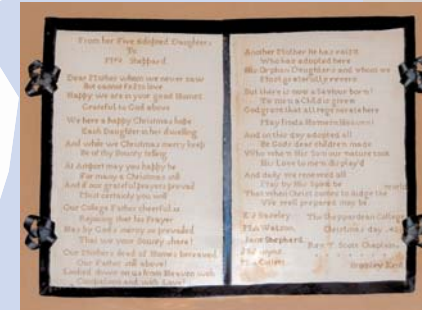 From her Five Adopted Daughters
To
Mrs Sheppard.
Dear Mother whom we never saw
But cannot fail to love
Happy we are in your good Homes
Grateful to God above
We here a happy Christmas hope
Each Daughter in her dwelling
And while we Christmas merry keep
Be of thy Bounty telling
At Amport may you happy be
For many a Christmas still
And if our grateful prayers prevail
Most certainly you will
Our College Father cheerful is
Rejoicing that his Prayer
Has by God's mercy so prevailed
That we your Bounty share!
Our Mothers dead of Homes bereaved
Our Father still above!
Looked down on us from Heaven with
Compassion and with Love!
Another Mother He has raised
Who has adopted here
His Orphan Daughters and whom we
Most gratefully revere
But there is now a Saviour born!
To us a Child is given
God grant that all regenerate here
May find a Home in Heaven!
And in this day adopted all
Be Gods dear children made
Who when His Son our nature took
His Love to man display'd
And daily we renewed all
May by His Spirit be
That when Christ comes to Judge the world
We well prepared may be
The Sheppardean College
M A Watson
Christmas day
Jane Shepherd
Rev T Scott Chaplain
Bromley Kent